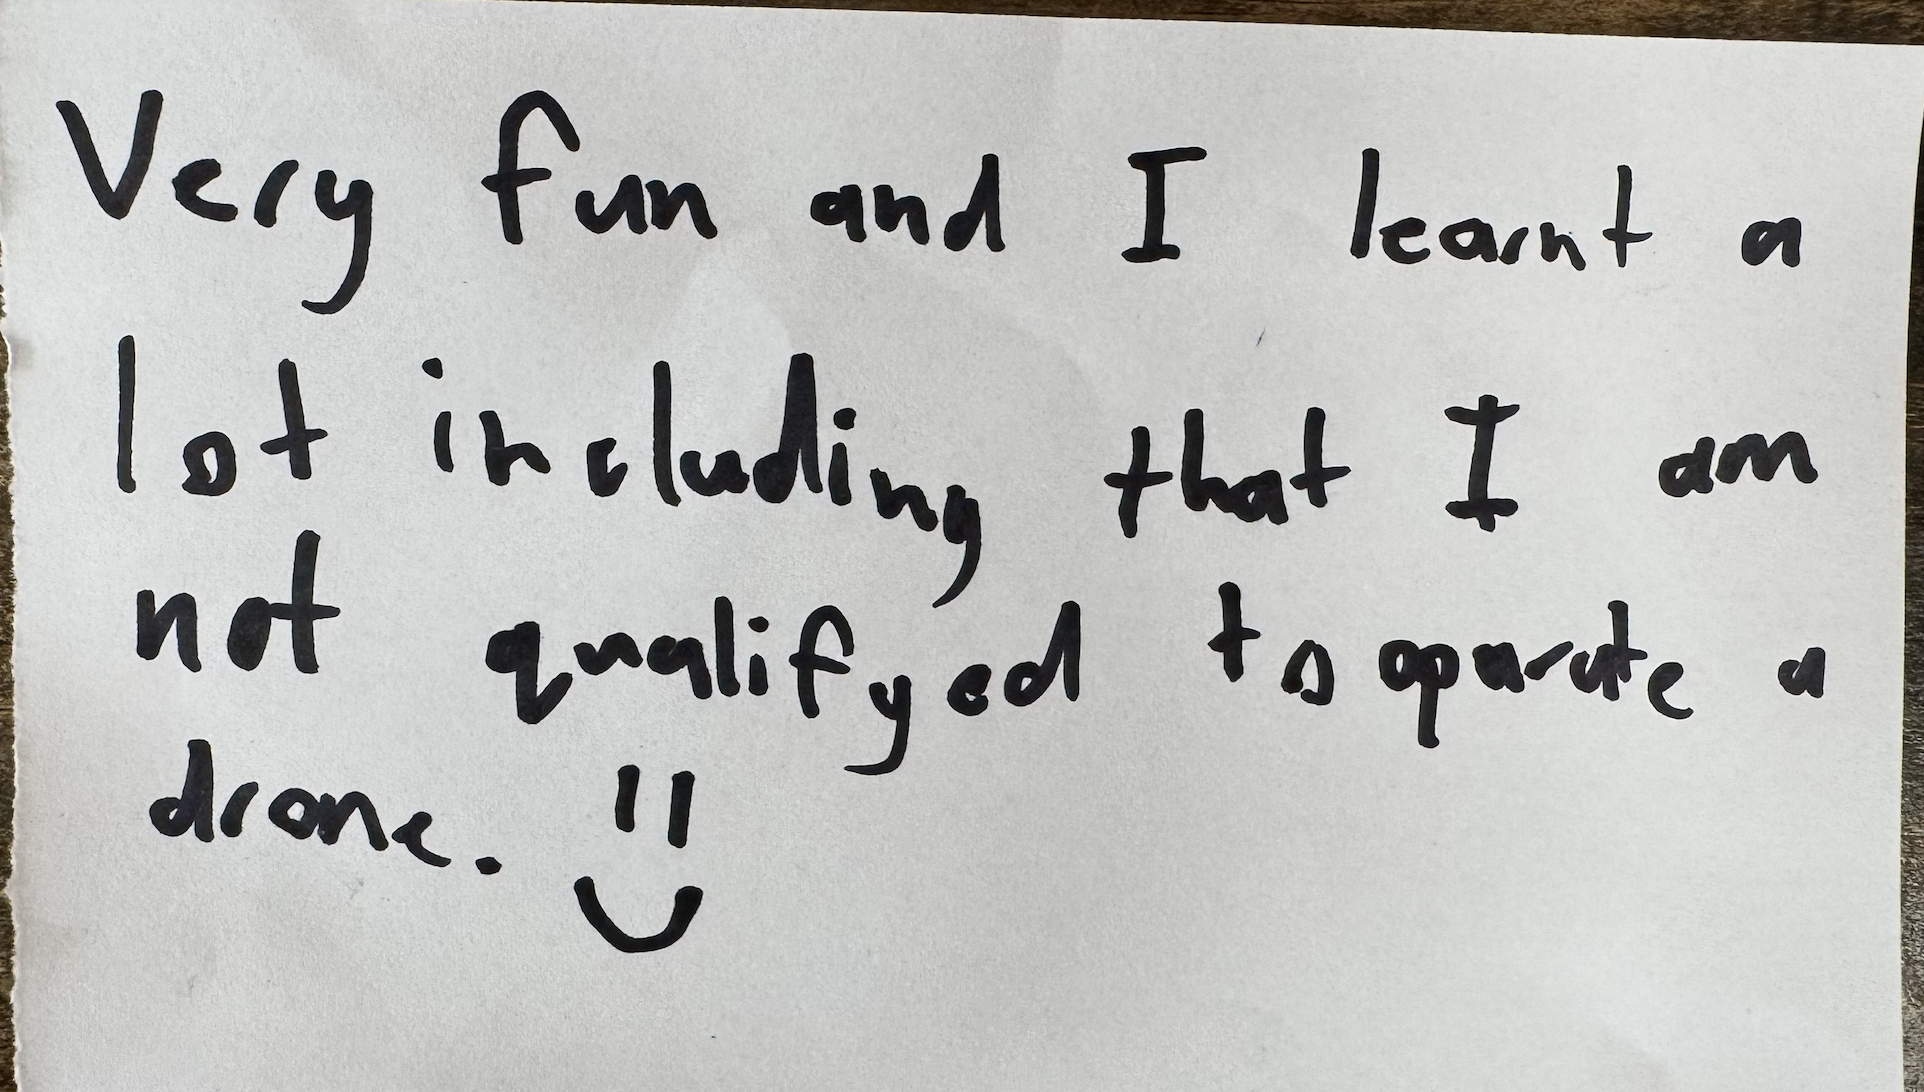 Very fun and I learnt a
lot including that I am
not qualifyed to oparate a
drone.